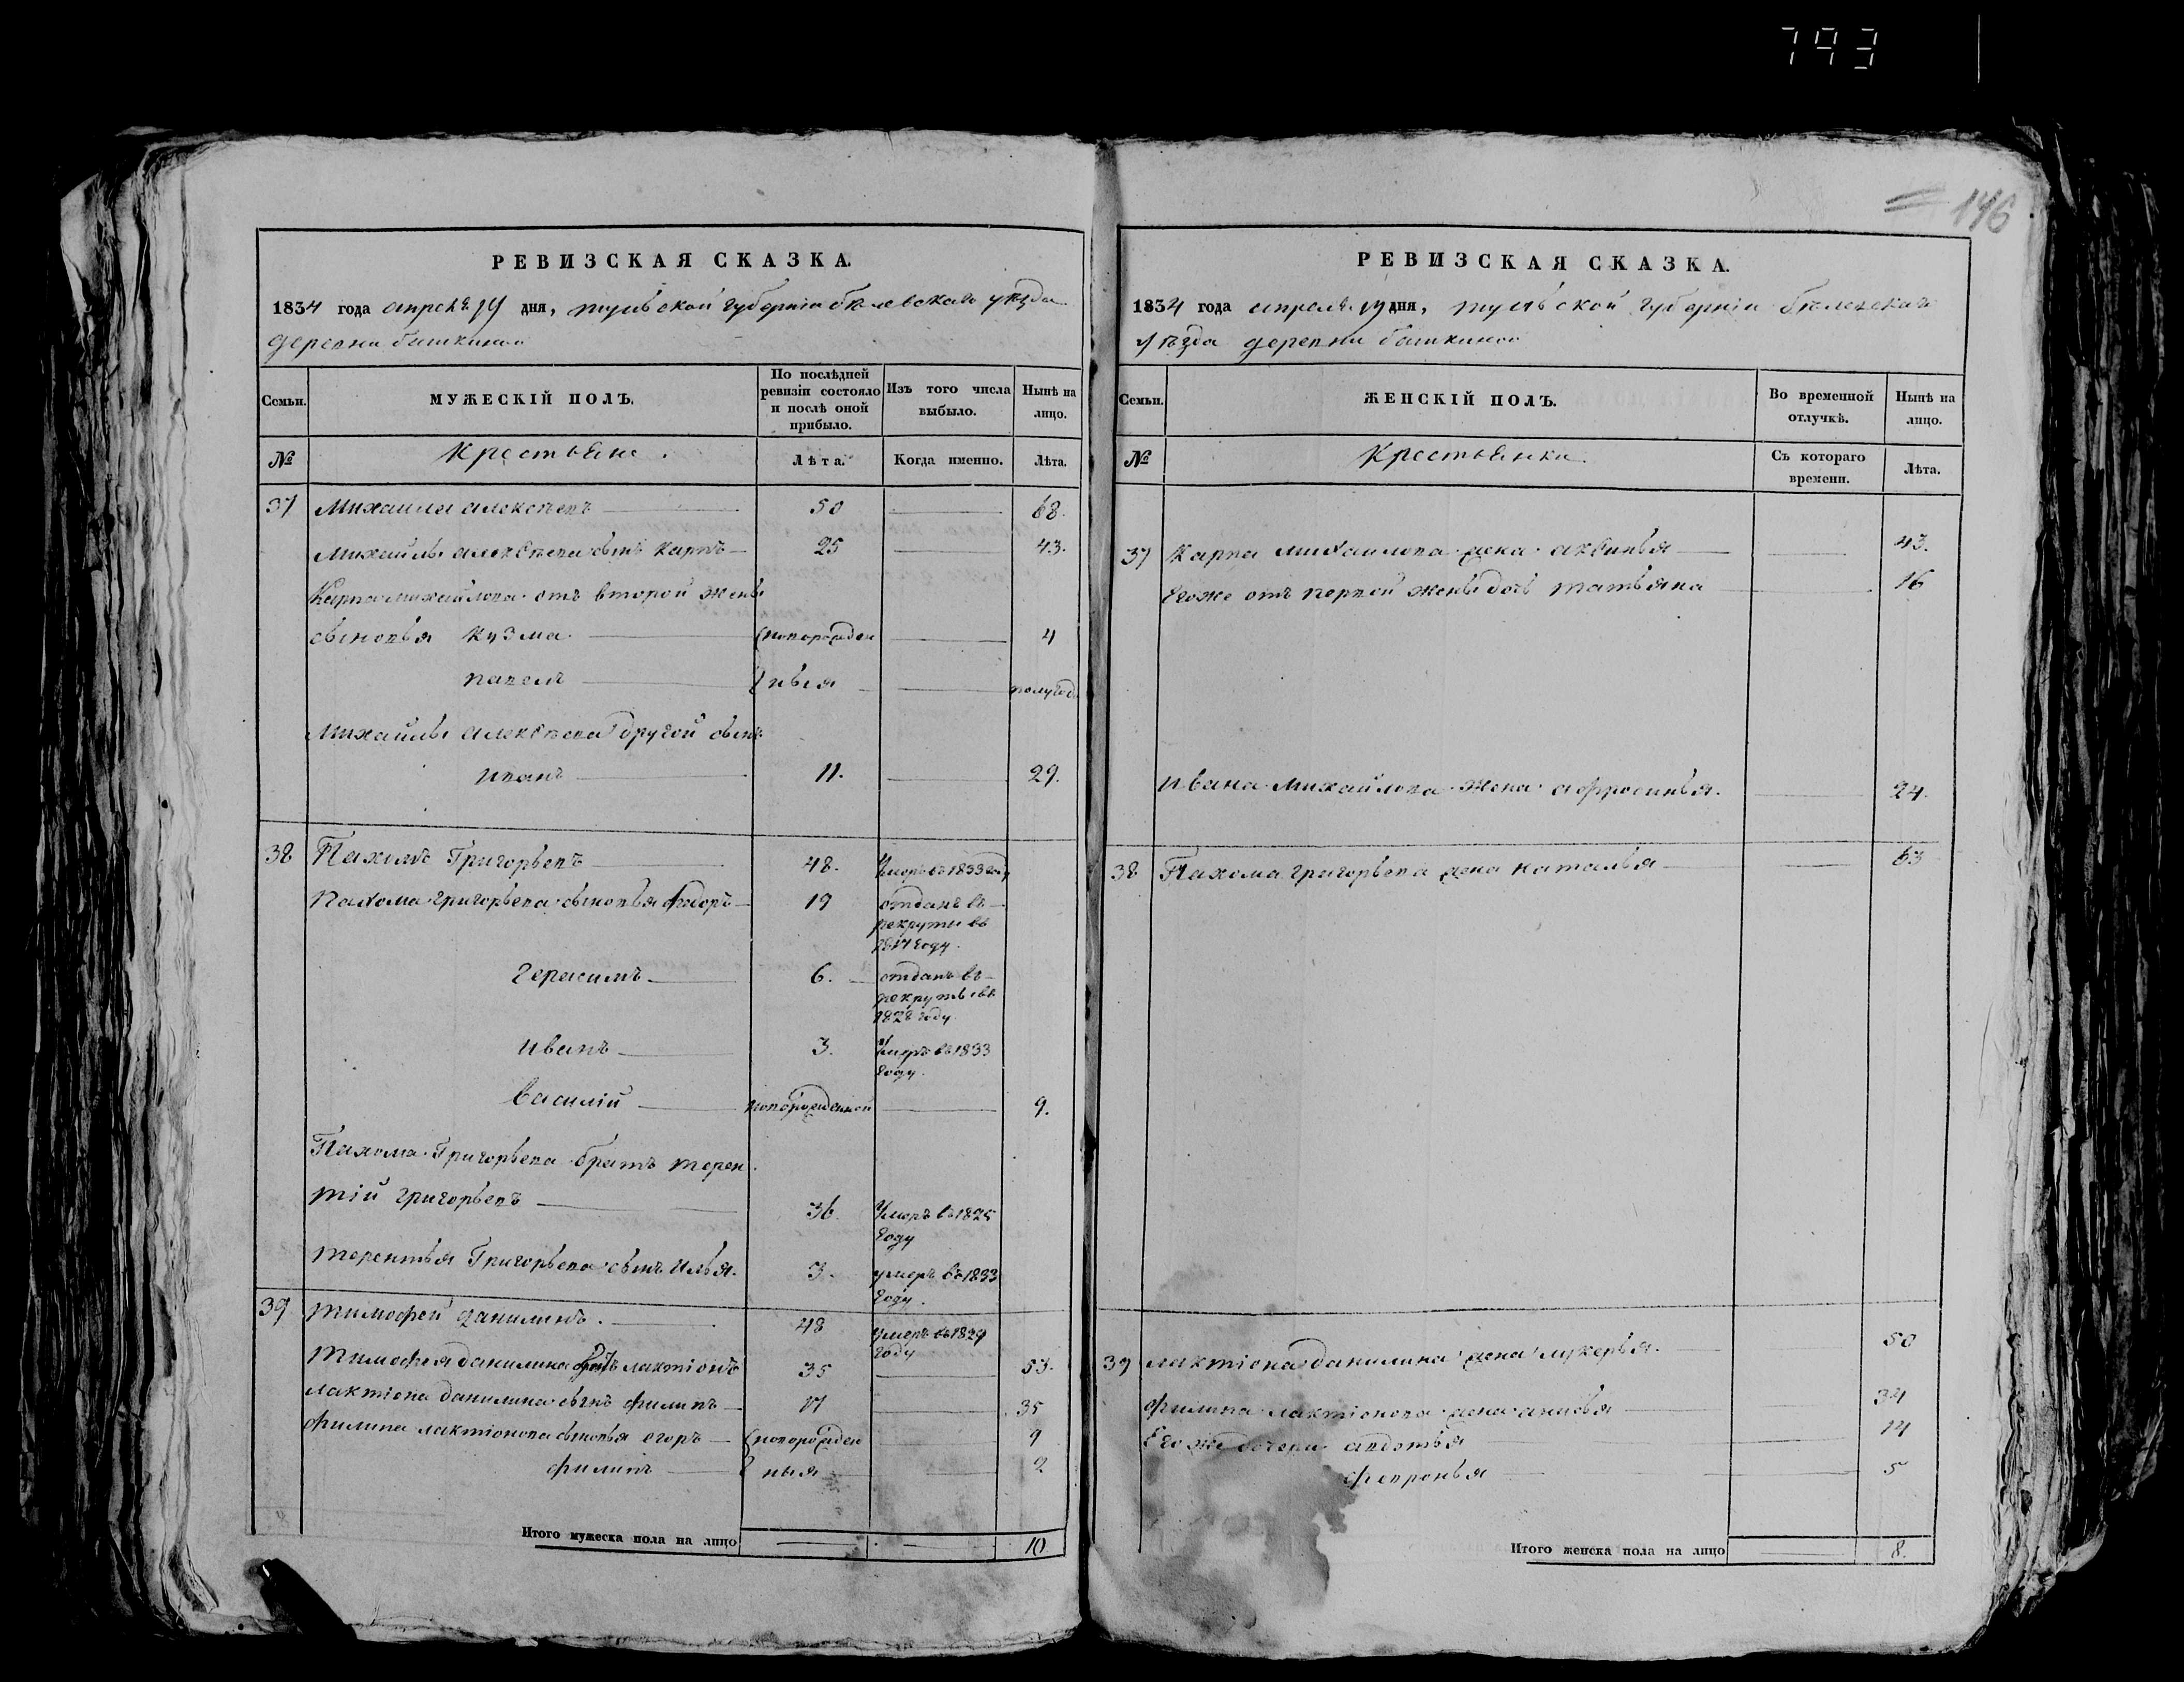 793
146
РЕВИЗСКАЯ СКАЗКА.
1834 года апреля 19 дня, тульской губерніи бѣлевскаго уѣзда
деревни башкиной
Семьи.
МУЖЕСКІЙ ПОЛЪ.
По послѣдней ревизіи состояло и послѣ оной прибыло.
Изъ того числа выбыло.
Нынѣ на лицо.
№
Крестьяне.
Лѣта.
Когда именно.
Лѣта.
37 Михаила алексѣевъ 50 68.
Михайлы алексѣева сынъ карпъ 25 43.
Карпа михайлова отъ второй жены
сыновья кузма новорожден 4
павелъ ныя полугода
Михайлы алексѣева другой сынъ
иванъ 11. 29.
38 Пахомъ Григорьевъ 48. Умеръ въ 1833 году
Пахома григорьева сыновья федоръ 19 отданъ въ
рекруты въ
году.
герасимъ 6. отданъ въ
рекруты въ
1828 году.
иванъ 3. Умеръ въ 1833
году.
василій новорожденной 9.
Пахома Григорьева братъ терен
тій григорьевъ 36 Умеръ въ 1825
году
терентья Григорьева сынъ илья. 3. умеръ въ 1833
году.
39 тимофей данилинъ. 48 умеръ въ 1829
году
тимофея данилина братъ лактіонъ 35 53.
лактіона данилина сынъ филипъ 17 35
филипа лактіонова сыновья егоръ новорожден 9
филипъ ныя 2
Итого мужеска пола на лицо 10
РЕВИЗСКАЯ СКАЗКА.
1834 года апреля 19 дня, тульской губерніи бѣлевскаго
уѣзда деревни башкиной
Семьи.
ЖЕНСКІЙ ПОЛЪ.
Во временной отлучкѣ.
Нынѣ на лицо.
№
Крестьянки.
Съ котораго времени.
Лѣта.
37 Карпа михайлова жена аксинья 43.
Егоже отъ первой жены дочь татьяна 16
ивана михайлова жена афросинья. 24.
38 Пахома григорьева жена наталья 63
39 лактіона данилина жена лукерья. 50
филипа лактіонова жена 34
Егоже дочери авдотья 14
февронья 5
Итого женска пола на лицо 8.